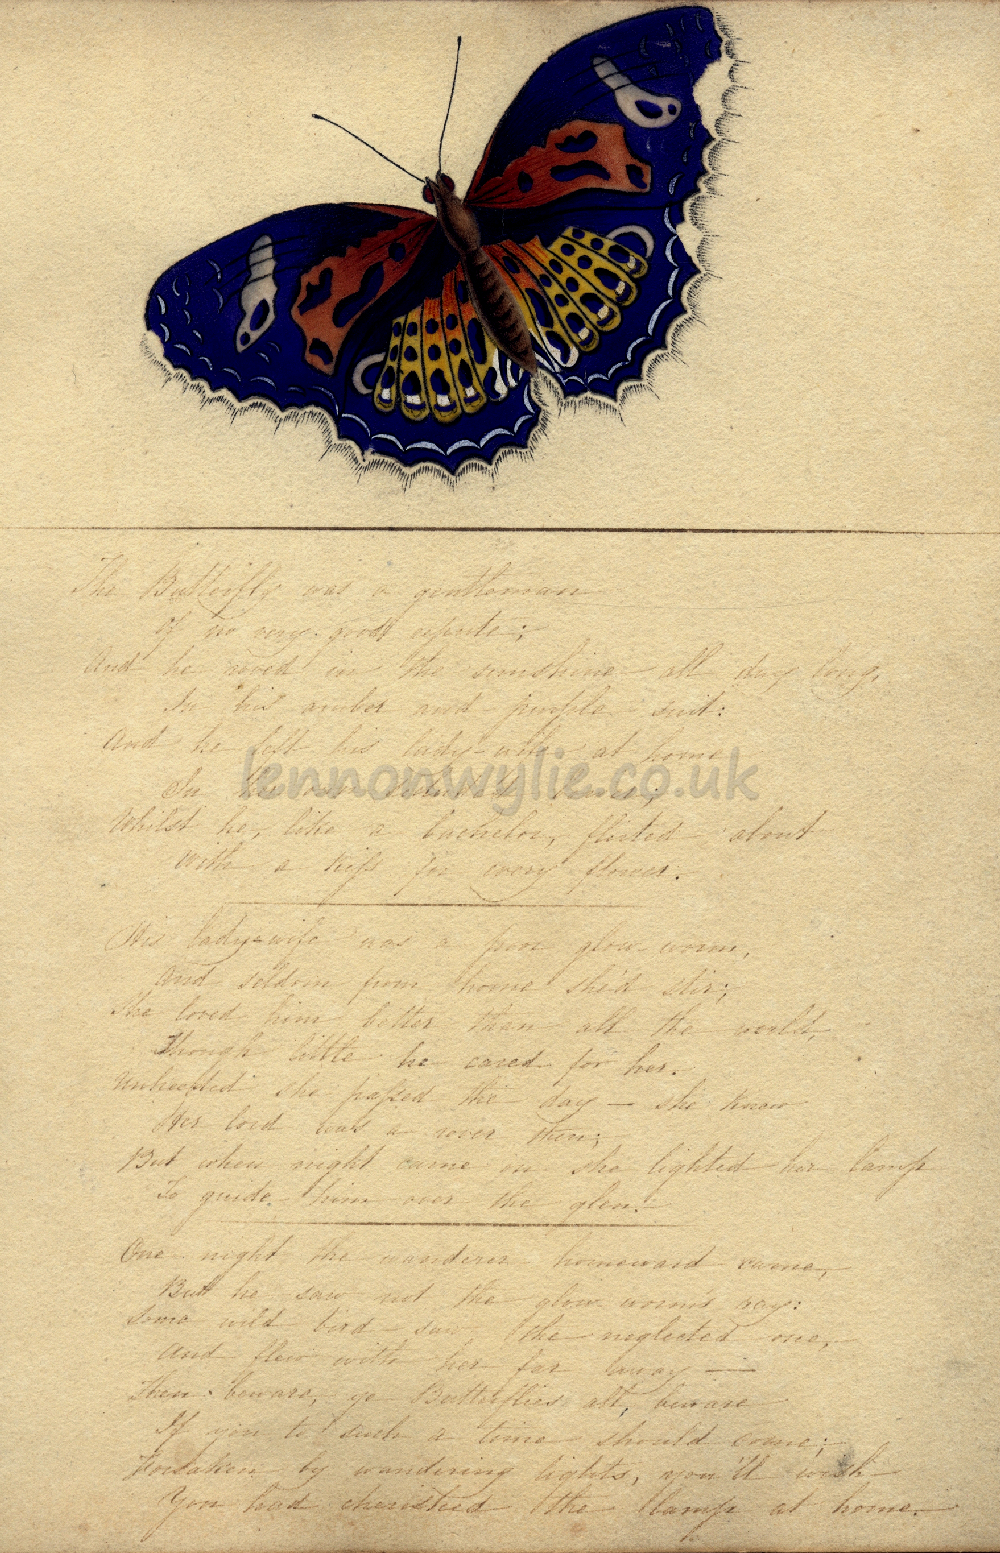 The Butterfly was a gentleman
Of no very good repute;
And he roved in the sunshine all day long,
In his amber and purple suit:
And he left his lady-wife at home
In
lennonwylie.co.uk
Whilst he, like a bachelor, flirted about
With a kiss for every flower.
His lady-wife was a poor glow worm,
And seldom from home she'd stir;
She loved him better than all the world,
Though little he cared for her.
Unheeded she passed the day — she knew
Her lord was a rover then;
But when night came on she lighted her lamp
To guide him over the glen.
One night the wanderer homeward came,
But he saw not the glow worm's ray:
Some wild bird saw the neglected one,
And flew with her far away —
Then beware, ye Butterflies all, beware
If you to such a time should come;
Forsaken by wandering lights, you'll wish
You had cherished the lamp at home.